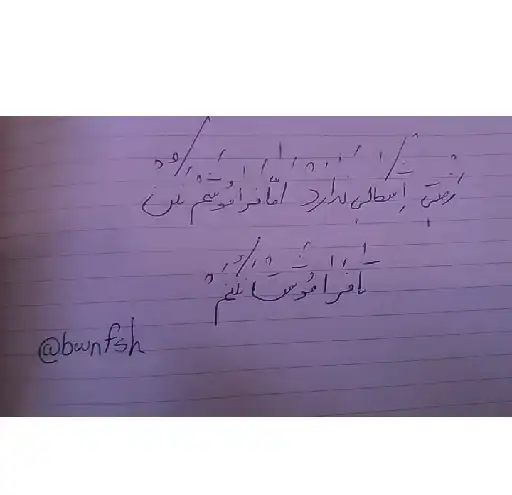 رفتی اشکالی ندارد امّا فراموشم نکن
یا فراموشت کنم
@bwnfsh